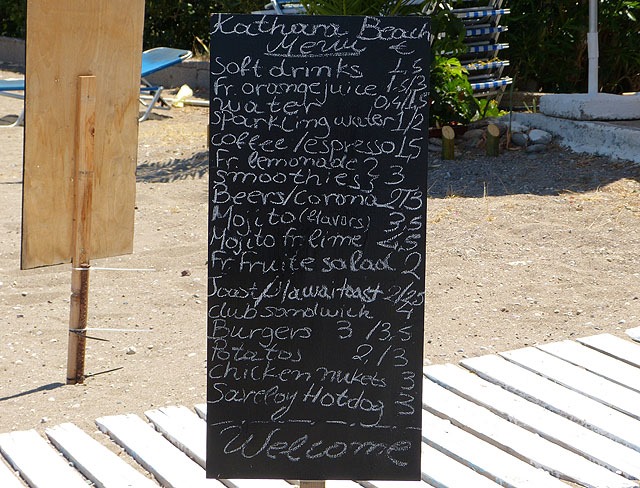 Kathara Beach
Menu €
Soft drinks 1,5
Fr. orangejuice 1,5/
Water 0,4/
Sparkling water 1/2
Coffee/espresso 1,5
Fr. lemonade 2
Smoothies 3
Beers/Corona 2/3
Mojito (flavors) 3,5
Mojito fr. lime 4,5
Fr. fruite salad 2
Toast/Hawaitoast 2/2,5
club sandwich 4
Burgers 3/3,5
Potatos 2/3
Chicken nukets 3
Saveloy Hotdog 3
Welcome